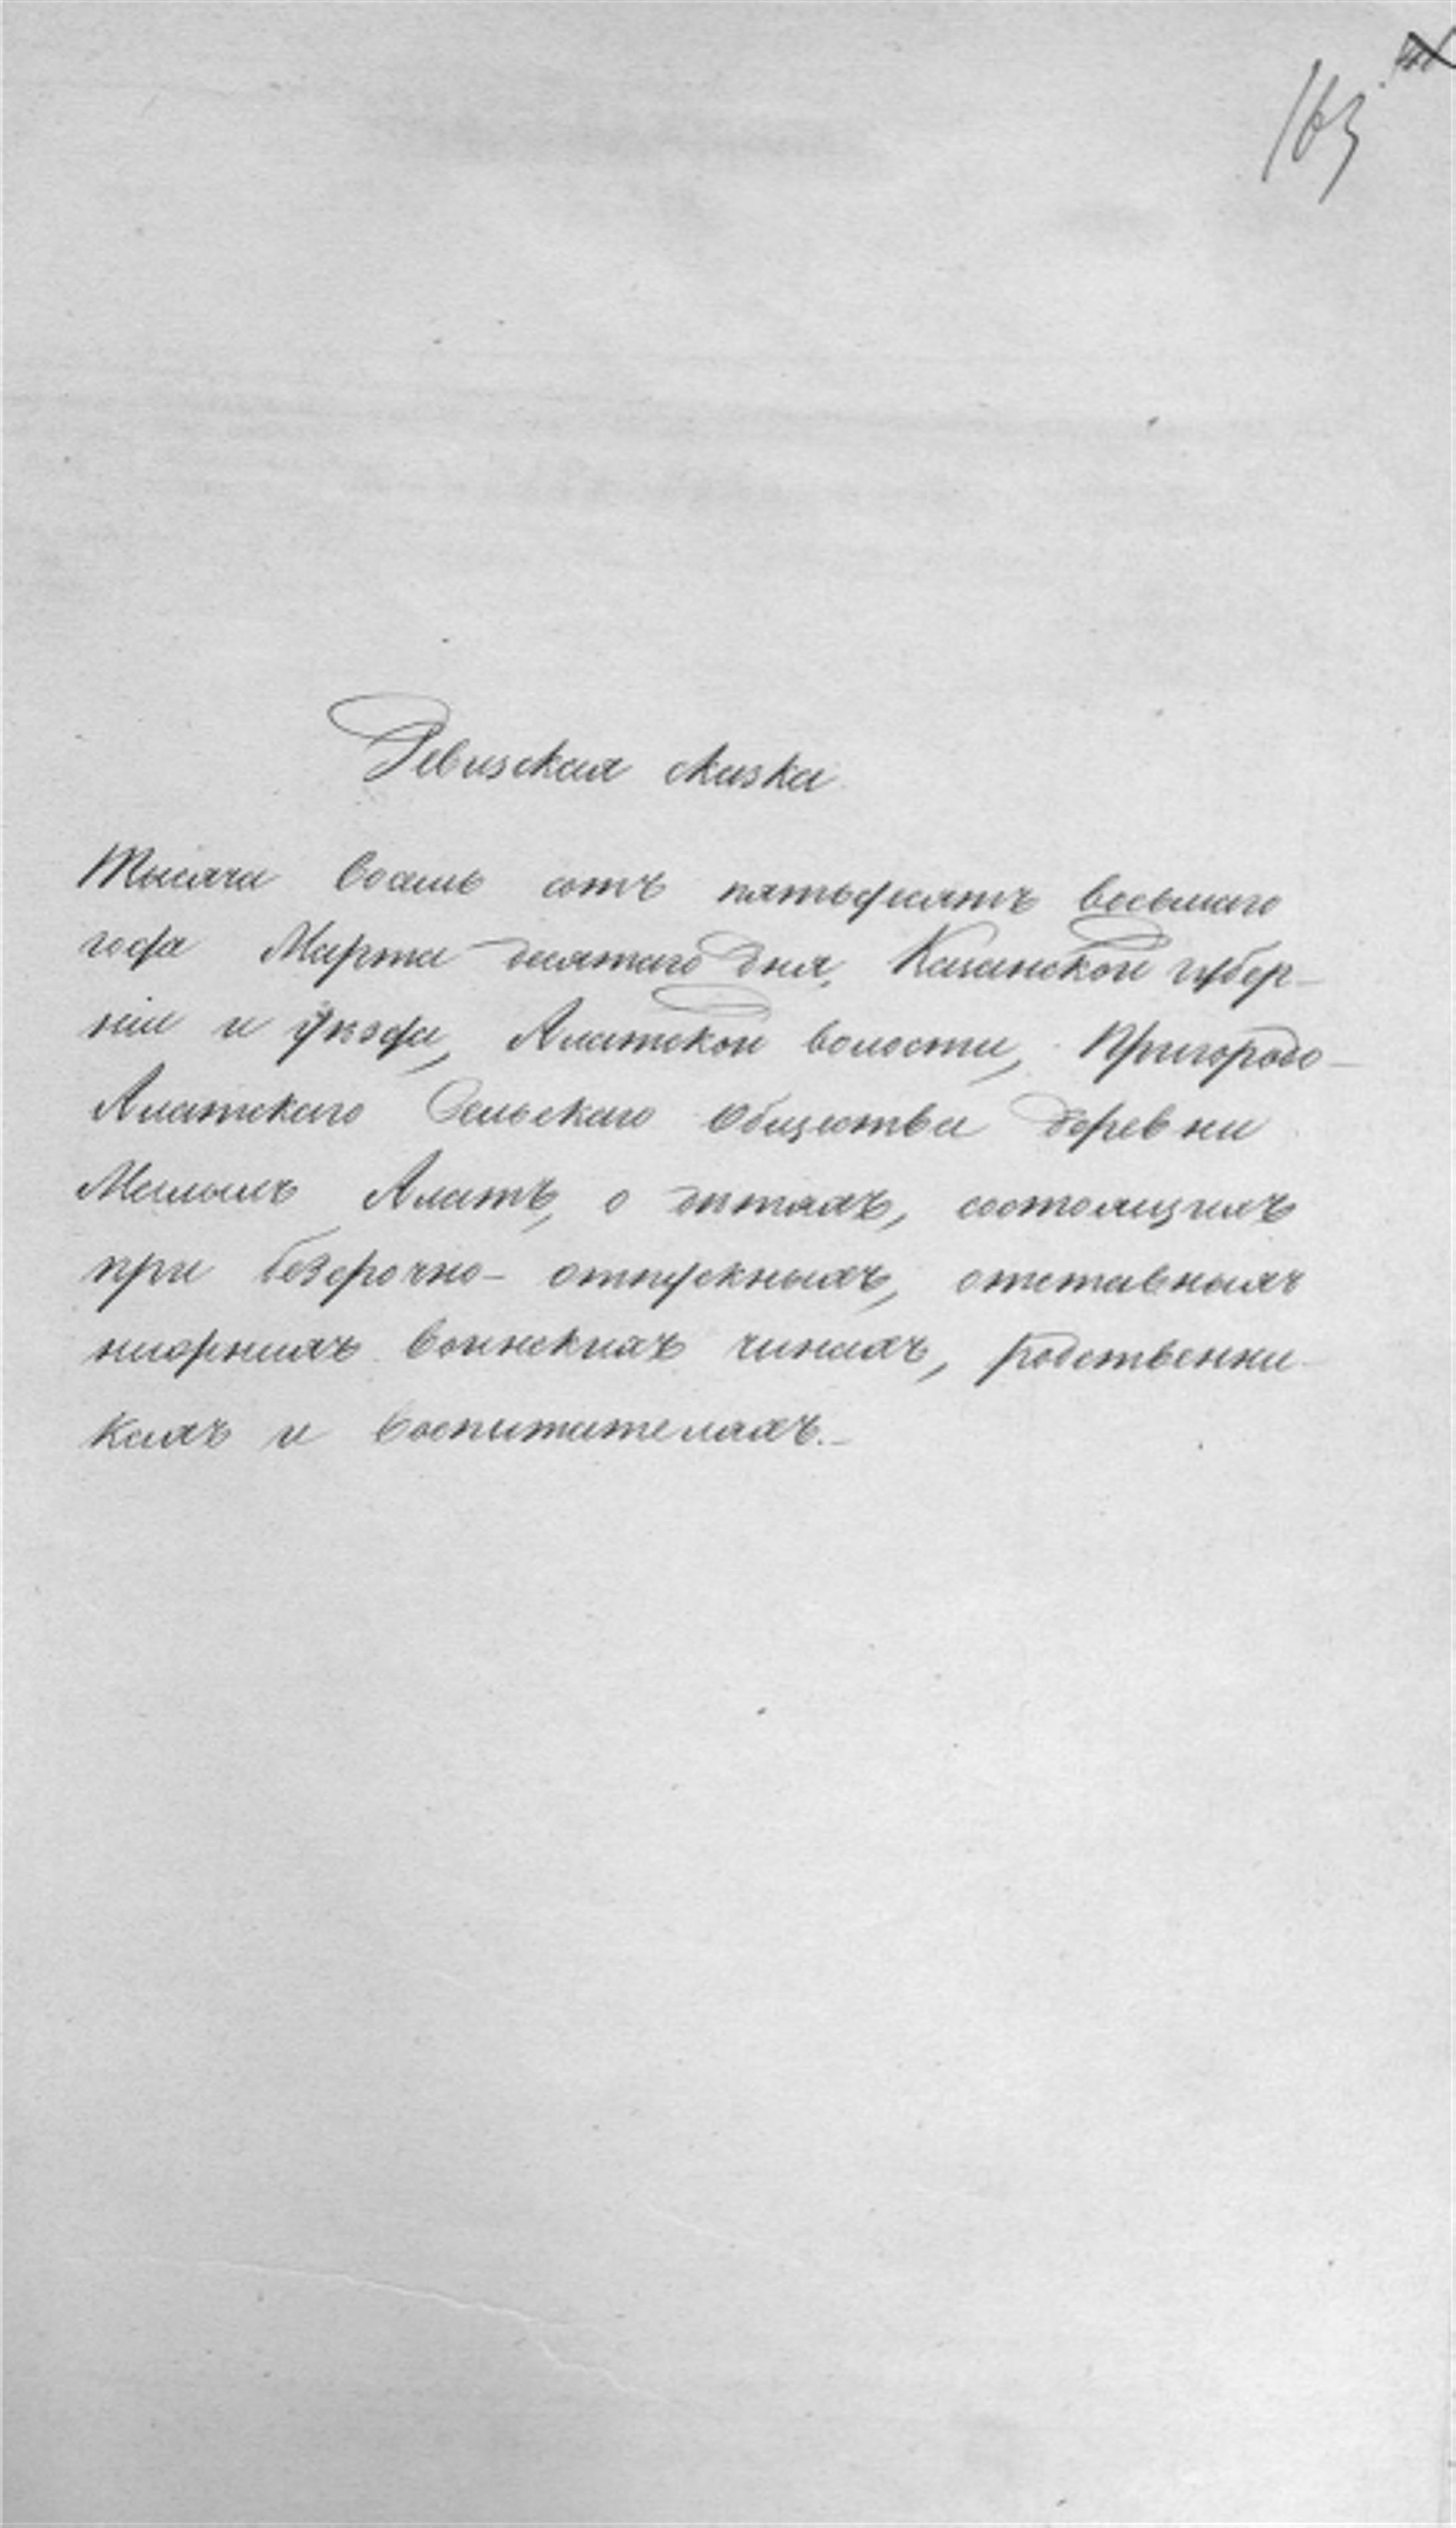 163
Ревизская сказка
Тысяча восемь сотъ пятьдесятъ восьмаго
года Марта десятаго дня, Казанской губер-
ніи и уѣзда, Алатской волости, Пригородо-
Алатскаго Сельскаго Общества деревни
Малыхъ Алатъ, о дѣтяхъ, состоящихъ
при безсрочно-отпускныхъ, отставныхъ
нижнихъ воинскихъ чинахъ, родственни-
кахъ и воспитателяхъ.-